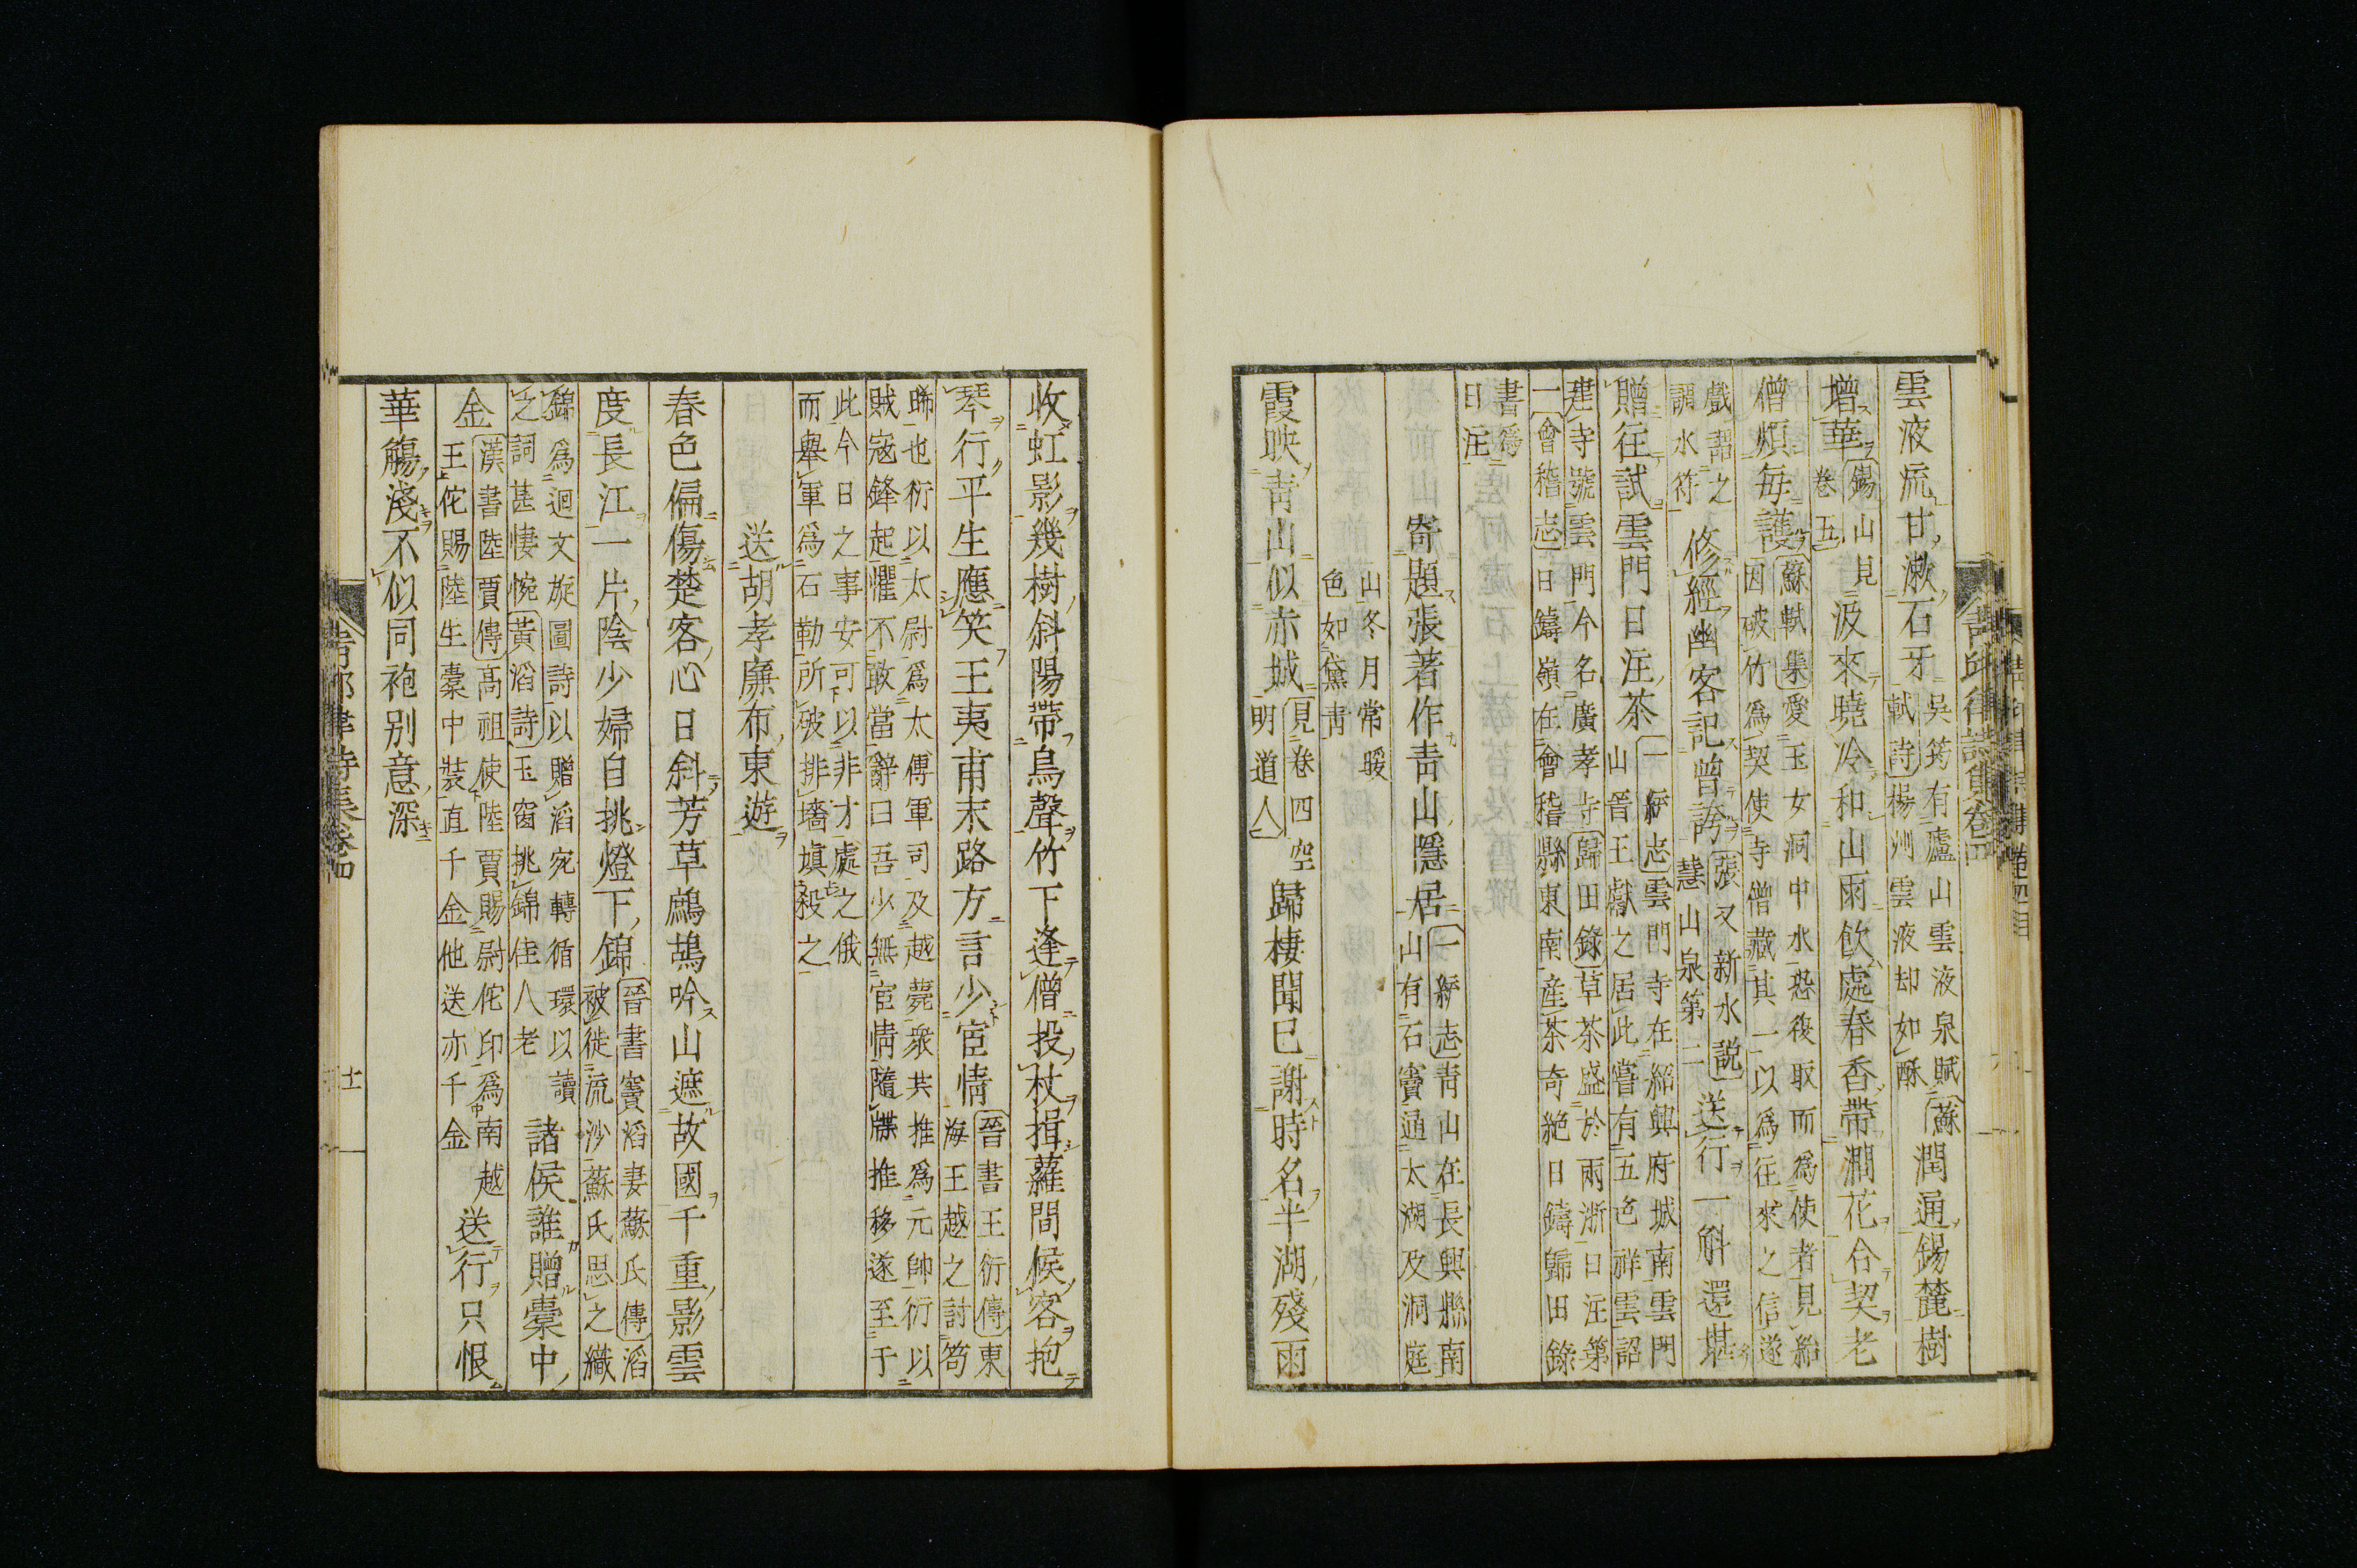 靑邱律詩集卷四
雲液流甘漱石牙吳筠有廬山雲液泉賦蘇軾詩楊州雲液却如酥潤通錫麓樹
增華錫山見卷五汲來曉冷和山雨飲處春香帶澗花合契老
僧煩每護蘇軾集愛玉女洞中水恐後取而爲使者見紿因破竹爲契使寺僧藏其一以爲往來之信遂
戲謂之調水符修經幽客記曾誇張又新水説慧山泉第二送行一斛還堪
贈往試雲門日注茶一統志雲門寺在紹興府城南雲門山晉王獻之居此嘗有五色祥雲詔
建寺號雲門今名廣孝寺歸田錄草茶盛於兩浙日注第一會稽志日鑄嶺在會稽縣東南産茶奇絶日鑄歸田錄
書爲日注
寄題張著作靑山隱居一統志靑山在長興縣南山有石竇通太湖及洞庭
山冬月常暖色如黛靑
霞映靑山似赤城見卷四空明道人歸棲聞已謝時名半湖殘雨
收虹影幾樹斜陽帶鳥聲竹下逢僧投杖揖蘿間候客抱
琴行平生應笑王夷甫末路方言少宦情晉書王衍傳東海王越之討苟
晞也衍以太尉爲太傅軍司及越薨衆共推爲元帥衍以賊寇鋒起懼不敢當辭曰吾少無宦情隨牒推移遂至于
此今日之事安可以非才處之俄而舉軍爲石勒所破排墻塡殺之
送胡孝廉布東遊
春色偏傷楚客心日斜芳草鷓鴣吟山遮故國千重影雲
度長江一片陰少婦自挑燈下錦晉書竇滔妻蘇氏傳滔被徙流沙蘇氏思之織
錦爲迴文旋圖詩以贈滔宛轉循環以讀之詞甚悽惋黃滔詩玉窗挑錦佳人老諸侯誰贈橐中
金漢書陸賈傳高祖使陸賈賜尉佗印爲南越王佗賜陸生橐中裝直千金他送亦千金送行只恨
華觴淺不似同袍別意深
靑邱律詩集卷四
十一